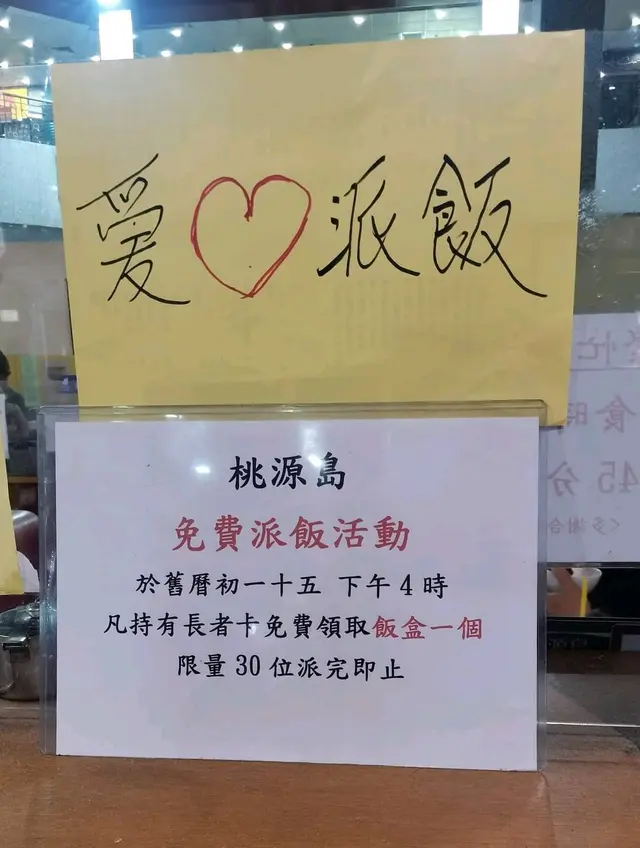 愛♡派飯
桃源島
免費派飯活動
於舊曆初一十五 下午4時
凡持有長者卡免費領取飯盒一個
限量30位派完即止
忙
食時
45分